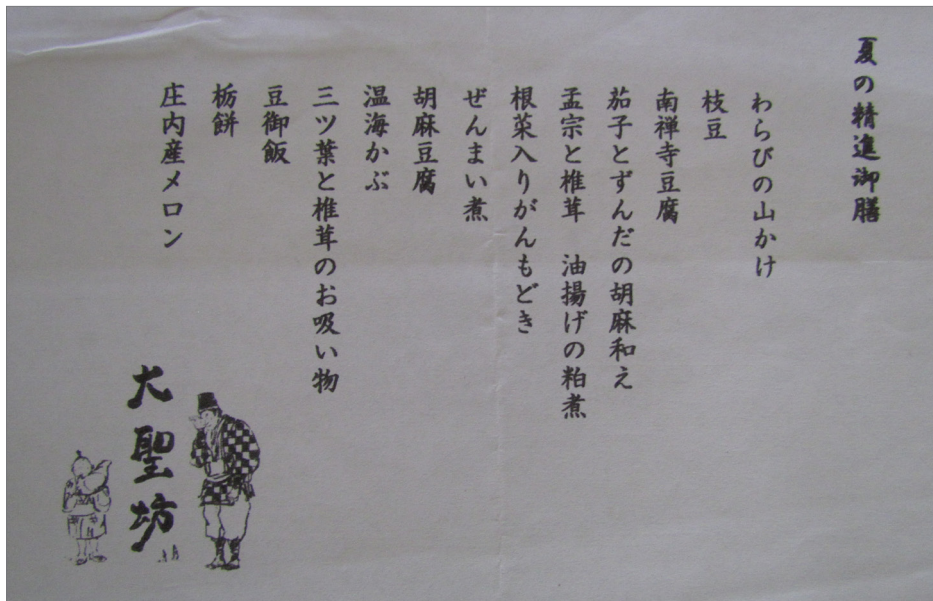 夏の精進御膳
わらびの山かけ
枝豆
南禅寺豆腐
茄子とずんだの胡麻和え
孟宗と椎茸　油揚げの粕煮
根菜入りがんもどき
ぜんまい煮
胡麻豆腐
温海かぶ
三ツ葉と椎茸のお吸い物
豆御飯
栃餅
庄内産メロン
大聖坊